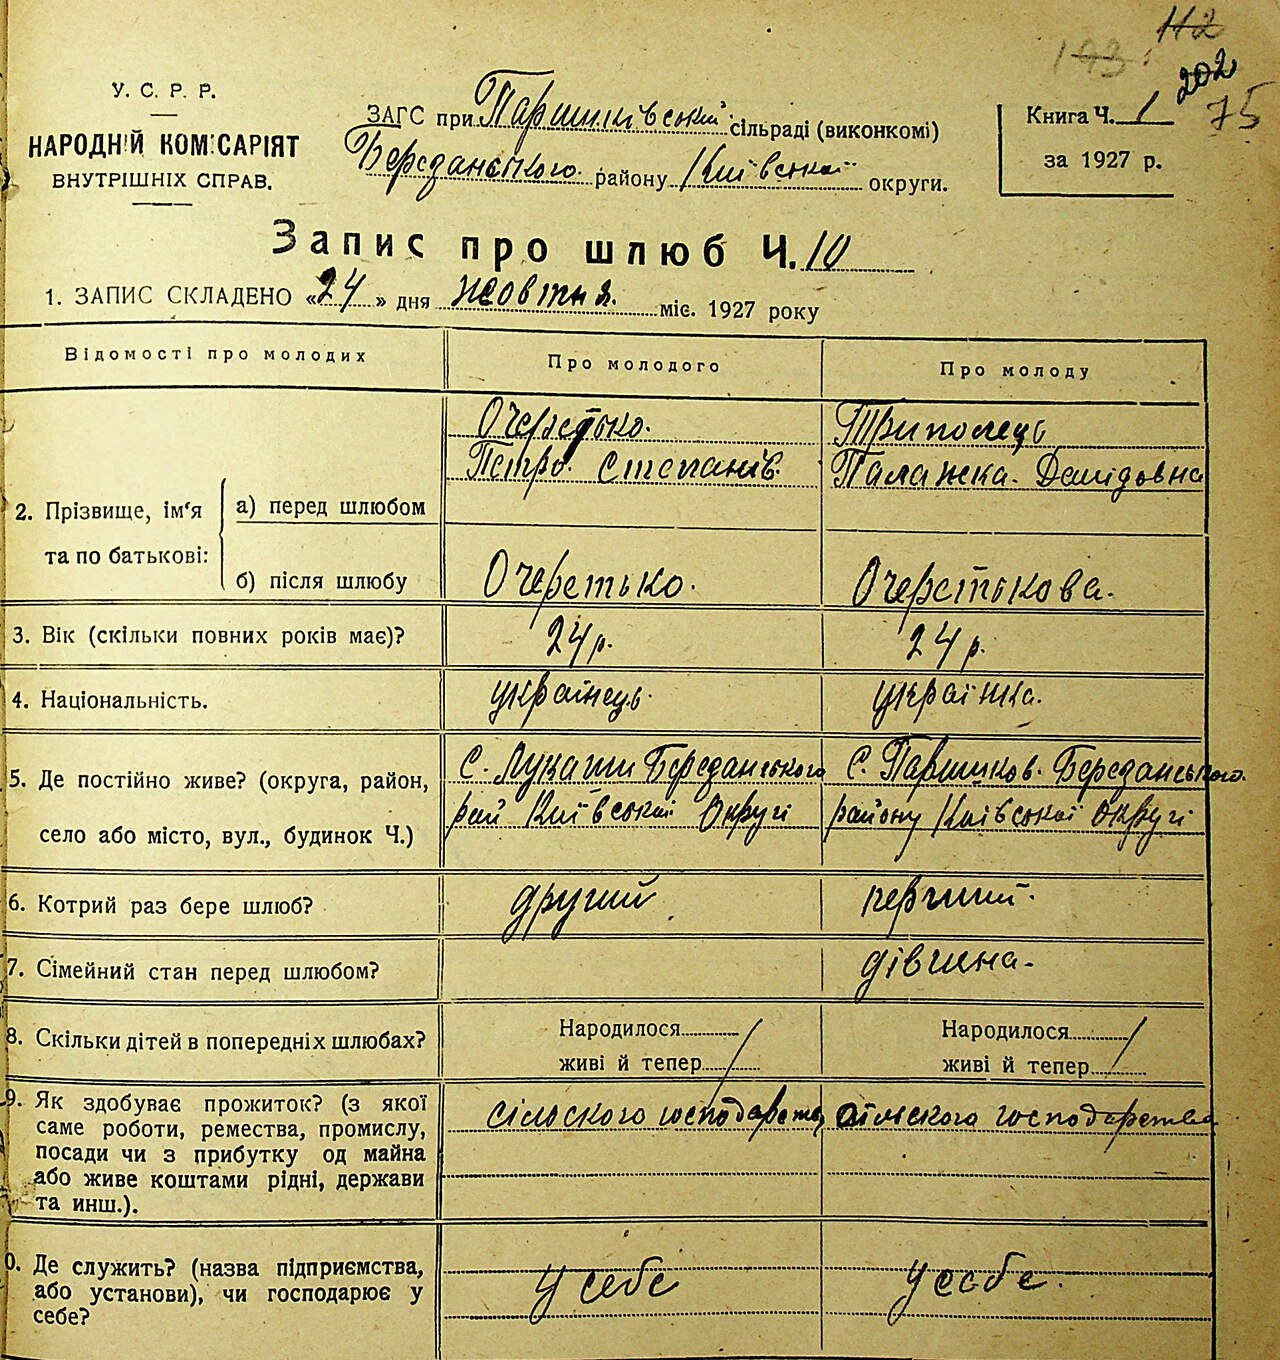 112
143
202
75
У. С. Р. Р.
НАРОДНІЙ КОМІСАРІЯТ
ВНУТРІШНІХ СПРАВ.
ЗАГС при Паришківській сільраді (виконкомі)
Березанського району Київської округи.
Книга Ч. 1
за 1927 р.
Запис про шлюб Ч. 10
1. ЗАПИС СКЛАДЕНО «24» дня жовтня. міс. 1927 року
Відомості про молодих
Про молодого
Про молоду
2. Прізвище, ім'я та по батькові:
а) перед шлюбом
Очеретько.
Петро. Степанів.
Триполець
Палажка. Демідовна
б) після шлюбу
Очеретько.
Очеретькова.
3. Вік (скільки повних років має)?
24 р.
24 р.
4. Національність.
українець.
українка.
5. Де постійно живе? (округа, район,
село або місто, вул., будинок Ч.)
С. Лукаши Березанського
рай Київської Округі
С. Паришков. Березанського.
району Київської Округі
6. Котрий раз бере шлюб?
другий
перчий.
7. Сімейний стан перед шлюбом?
дівчина.
8. Скільки дітей в попередніх шлюбах?
Народилося
живі й тепер
Народилося
живі й тепер
9. Як здобуває прожиток? (з якої
саме роботи, ремества, промислу,
посади чи з прибутку од майна
або живе коштами рідні, держави
та инш.).
сільского господарств
сільского господарства
0. Де служить? (назва підприємства,
або установи), чи господарює у
себе?
у себе
у себе.